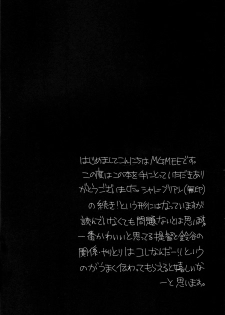 はじめましてこんにちはMGMEEです。
この度はこの本を手にとっていただきあり
がとうございました。シャレードリアル(無印)
の続き!という形にはなっていますが
読んでいなくても問題ないとは思います。
一番かわいいと思ってる提督と鈴谷の
関係・やりとりはコレなんだー!!という
のがうまく伝わってもらえると嬉しいな
ーと思います。